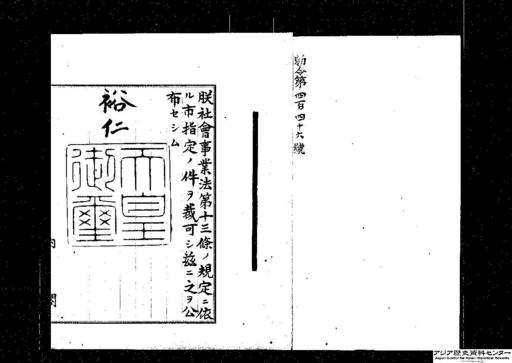 勅令第四百四十六號
朕社會事業法第十三條ノ規定ニ依
ル市指定ノ件ヲ裁可シ茲ニ之ヲ公
布セシム
裕仁
天皇
御璽
内閣
アジア歴史資料センター
Japan Center for Asian Historical Records